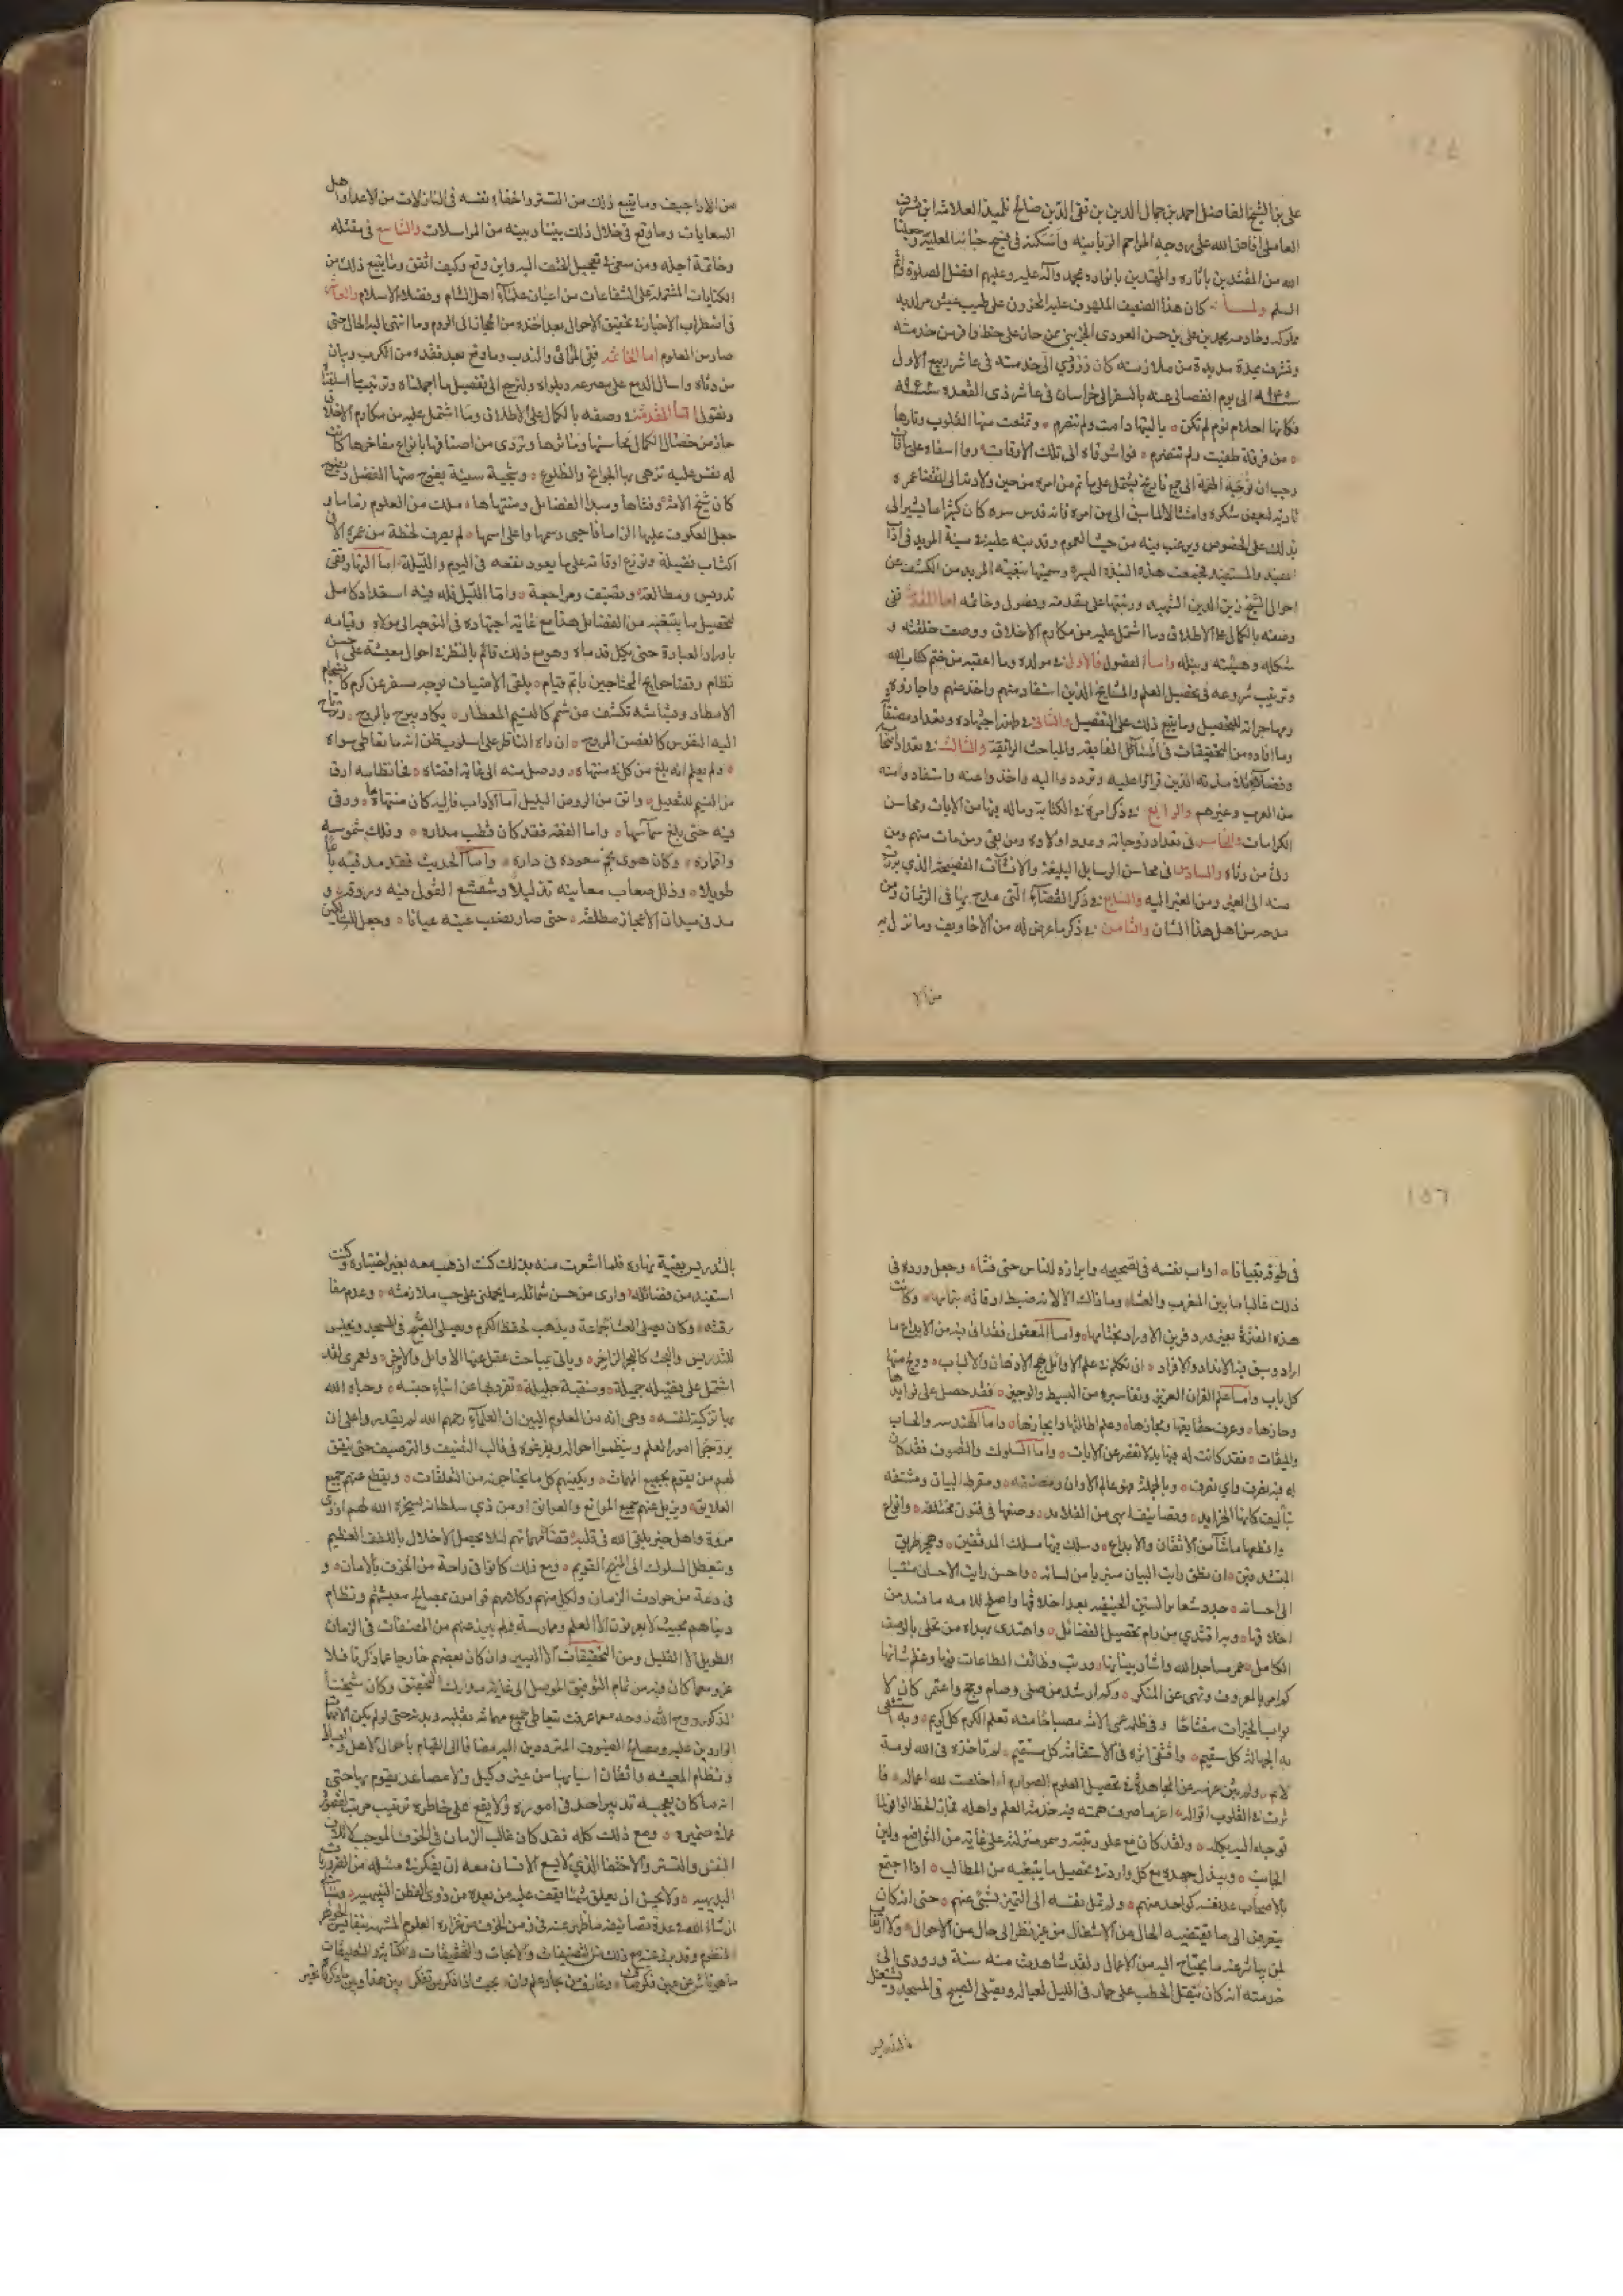 علي بن الشيخ الفاضل احمد بن جمال الدين بن تقي الدين صالح تلميذ العلامة ابن مشرف
العاملي افاض الله على روحه المراحم الربانيه واسكنه في فسيح جنانه العلية وجعلنا
الله من المقتدين باثاره والمهتدين بانواره بمحمد وآله عليه وعليهم افضل الصلوة واتم
السلم ولما كان هذا الضعيف الملهوف عليه المحزون على طيب عيش مر لديه
مملوكه وخادمه محمد بن علي بن حسن العودي الجزيني ممن حاز على حظ وافر من خدمته
وتشرف بمدة مديدة من ملازمته كان ورودي الى خدمته في عاشر ربيع الاول
الى يوم انفصالي عنه بالسفر الى خراسان في عاشر ذي القعدة
فكانها احلام نوم لم تكن يا ليتها دامت ولم تتصرم وتمتعت منها القلوب ونارها
من فرقة طفيت ولم تتضرم فواشوقاه الى تلك الاوقات ووا اسفاه على ما فات
وجب ان نوجه الهمة الى جمع تاريخ يشتمل على ما تم من امره من حين ولادته الى انقضا عمره
تادية لبعض شكره وامتثالا لما سبق الي من امره فانه قدس سره كان كثيرا ما يشير الي
بذلك على الخصوص ويرغب فيه من حيث العموم
المفيد والمستفيد فجمعت هذه النبذة اليسيرة وسميتها بغية المريد من الكشف عن
احوال الشيخ زين الدين الشهيد ورتبتها على مقدمه وفصول وخاتمه اما المقدمة ففي
وصفه بالكمال على الاطلاق وما اشتمل عليه من مكارم الاخلاق ووصف خلقته و
شكله وهيئته ونبله واما الفصول فالاول في مولده وما اعقبه من ختم كتاب الله
وترتيب شروعه في تحصيل العلم والمشايخ الذين استفاد منهم واخذ عنهم واجازوه
ومهاجراته للتحصيل وما يتبع ذلك على التفصيل والثاني في طهور اجتهاده وتعداد مصنفاته
وما افاده من التحقيقات في المسائل الفايقه والمباحث الرائقه والثالث في تعداد
وفضلا تلامذته الذين قراوا عليه وترددوا اليه واخذوا عنه واستفادوا منه
من العرب وغيرهم والرابع في ذكر امره في الكتابة وما له فيها من الايات ومحاسن
الكرامات والخامس في تعداد زوجاته وعدد اولاده ومن بقي ومن مات منهم ومن
رثى من رثاه والسادس في محاسن الرسايل البليغة والانشآت الفصيحة الذي برزت
منه الى الغير ومن الغير اليه والسابع في ذكر القصائد التي مدح بها في الزمان ومن
مدحه من اهل هذا الشان والثامن في ذكر ما عرض له من الاخاويف وما نزل به
من الا
من الاراجيف وما يتبع ذلك من التستر واخفاء نفسه في النازلات من الاعدا واهل
السعايات وما وقع في خلال ذلك بيننا وبينه من المراسلات والتاسع في مقتله
وخاتمة اجله ومن سعى في تعجيل الحتف اليه واين وقع وكيف اتفق وما يتبع ذلك من
الكتابات المشتملة على الشفاعات من اعيان علماء اهل الشام وفضلاء الاسلام والعاشر
في اضطراب الاخبار في تحقيق الاحوال بعد اخذه من الحجاز الى الروم وما انتهى اليه الحال حتى
صار من العلوم اما الخاتمة ففي المراثي والندب وما وقع بعد فقده من الكرب وبيان
من رثاه واسال الدمع على مصرعه وبلواه ولنرجع الى تفصيل ما اجملناه وترتيب ما اسلفناه
ونقول اما المقدمة في وصفه بالكمال على الاطلاق وما اشتمل عليه من مكارم الاخلاق
حاز من خصال الكمال محاسنها ومآثرها وتردى من اصنافها بانواع مفاخرها كانت
له نفس عليه تزهى بها الجوانح والضلوع وسجية سنية يفوح منها الفضل ويضوع
كان شيخ الامة وفتاها ومبدا الفضائل ومنتهاها ملك من العلوم زماما و
جعل العكوف عليها الزاما فاحيى رسمها واعلى اسمها لم يصرف لحظة من عمره الا في
اكتساب فضيلة ووزع اوقاته على ما يعود نفعه في اليوم والليلة اما النهار ففي
تدريس ومطالعة وتصنيف ومراجعة واما الليل فله فيه استعداد كامل
لتحصيل ما يبتغيه من الفضائل هذا مع غاية اجتهاده في التوجه الى مولاه وقيامه
باوراد العبادة حتى يكل قدماه وهو مع ذلك قائم بالنظر في احوال معيشته على احسن
نظام وقضا حوايج المحتاجين باتم قيام يلقى الاضياف بوجه مسفر عن كرم كانسجام
الامطار وبشاشة تكشف عن شمم كالنسيم المعطار يكاد يبرح بالروح وترتاح
اليه النفوس كالغصن المروح ان راه الناظر على اسلوب ظن انه ما تعاطى سواه
ولم يعلم انه بلغ من كل فن منتهاه ووصل منه الى غاية اقصاه فجا نظامه ارق
من النسيم للعليل وانق من الروض البليل اما الادب فاليه كان منتهاه ورقى
فيه حتى بلغ سماها واما الفقه فقد كان قطب مداره وفلك شموسه
واقماره وكان هوى نجم سعوده في داره واما الحديث فقد مد فيه باعا
طويلا وذلل صعاب معانيه تذليلا وشعشع القول فيه وروقه و
مد في ميدان الاعجاز مطلقه حتى صار نصب عينه عيانا وجعل للسالكين
١٥٦
في طرقه تبيانا اداب نفسه في تصحيحه وابرازه للناس حتى فشا وجعل ورده في
ذلك غالبا ما بين المغرب والعشا وما ذاك الا لانه ضبط اوقاته بتمامها وكانت
هذه الفترة بغير ورد فزين الاوراد بختامها واما المعقول فقد اتى فيه من الابداع ما
اراد وسبق فيه الانداد والافراد ان تكلم في علم الاوائل بهج الاذهان والالباب وولج منها
كل باب واما علم القران العزيز وتفاسيره من البسيط والوجيز فقد حصل على فوايدها
وحازها وعرف حقايقها ومجازها وعلم اطالتها وايجازها واما الهندسه والحساب
والميقات فقد كانت له فيها يد لا تقصر عن الايات واما السلوك والتصوف فقد كان
له فيه تصرف واي تصرف وبالجملة فهو عالم الاوان ومصنفه ومقرط البيان ومشنفه
بتآليف كانها الخرايد وتصانيف ابهى من القلايد وضعها في فنون مختلفه وانواع
واقطعها ما شآ من الاتقان والابداع وسلك فيها مسلك المدققين وهجر طريق
المتشدقين ان نطق رايت البيان منسربا من لسانه واحسن رايت الاحسان منتسبا
الى احسانه جدد شعاير السنن الحنيفيه بعد اخلاقها واصلح للامه ما فسد من
اخلاقها وبه اقتدى من رام تحصيل الفضائل واهتدى بهداه من تحلى بالوصف
الكامل عمر مساجد الله واشاد بنيانها ورتب وظائف الطاعات فيها وعظم شانها
كم امر بالمعروف ونهى عن المنكر وكم ارشد من صلى وصام وحج واعتمر كان لا
بواب الخيرات مفتاحا وفي ظلمة عمى الامه مصباحا منه تعلم الكرم كل كريم وبه استشفى
من الجهالة كل سقيم واقتفى اثره في الاستقامة كل مستقيم لم تاخذه في الله لومة
لائم ولم يثن عزمه عن المجاهدة في تحصيل العلوم الصوارم اخلصت لله اعماله فا
ثرت في القلوب اقواله اعز ما صرفت همته فيه خدمة العلم واهله فحاز الحظ الوافر لما
توجه اليه بكله ولقد كان مع علو رتبته وسمو منزلته على غاية من التواضع ولين
الجانب ويبذل جهده مع كل وارد في تحصيل ما يبتغيه من المطالب اذا اجتمع
بالاصحاب عد نفسه كواحد منهم ولم تمل نفسه الى التميز بشئ عنهم حتى انه كان
يتعرض الى ما يقتضيه الحال من الاشغال من غير نظر الى حال من الاحوال ولا ارتقا
لمن يباشر عنه ما يحتاج اليه من الاعمال ولقد شاهدت منه سنة ورودي الى
خدمته انه كان ينقل الحطب على حمار في الليل لعياله ويصلي الصبح في المسجد ويشتغل
بالتدريس
بالتدريس بقية نهاره فلما اشعرت منه بذلك كنت اذهب معه بغير اختياره وكنت
استفيد من فضائله وارى من حسن شمائله ما يحملني على حب ملازمته وعدم مفا
رقته وكان يصلي العشا جماعة ويذهب لحفظ الكرم ويصلي الصبح في المسجد ويجلس
للتدريس والبحث كالبحر الزاخر وياتي بمباحث غفل عنها الاوائل والاواخر ولعمري لقد
اشتمل على فضيلة جميلة ومنقبة جليلة تفرد بها عن ابناء جنسه وحباه الله
بها تزكية لنفسه وهي انه من المعلوم البين ان العلماء رحمهم الله لم يقدروا على ان
يروجوا امور العلم وينظموا احواله ويفرغوه في قالب التصنيف والترصيف حتى يتفق
لهم من يقوم بجميع المهمات ويكفيهم كل ما يحتاجون من التعلقات ويقطع عنهم جميع
العلايق ويزيل عنهم جميع الموانع والعوائق اما من ذي سلطان يسخره الله لهم او ذي
مروة واهل خير يلقي الله في قلبه قضا مهماتهم لئلا يحصل الاخلال باللطف العظيم
ويتعطل السلوك الى المنهج القويم ومع ذلك كانوا في راحة من الخوف بالامان و
في دعة من حوادث الزمان ولكل منهم وكلاهم قوامون بمصالح معيشتهم ونظام
دنياهم بحيث لا يعرفون الا العلم وممارسته ولم يبرز عنهم من المصنفات في الزمان
الطويل الا القليل ومن التحقيقات الا اليسير وان كان بعضهم خارجا عما ذكرنا فلا
كان فيه من تمام التوفيق الموصل الى غاية مدارك التحقيق وكان شيخنا
المذكور روح الله روحه مع ما عرفت يتعاطى جميع مهماته بقلبه وبدنه حتى لو لم يكن الا مهمات
الواردين عليه ومصالح الضيوف المترددين اليه مضافا الى القيام باحوال الاهل والعيال
ونظام المعيشه واتقان اسبابها من غير وكيل ولا مساعد يقوم بها حتى
انه ما كان يعجبه تدبير احد في اموره ولا يقع على خاطره ترتيب مرتب لقصوره
عما في ضميره ومع ذلك كله فقد كان غالب الزمان في الخوف الموجب لاتلاف
النفس والتستر والاختفا الذي لا يسع الانسان معه ان يفكر في مسئله من الضروريات
البديهيه ولا يحسن ان يعلق شيئا يقف عليه من بعده من ذوي الفطن النبيهه وسياتي
ان شاء الله في عدة تصانيفه ما ظهر عنه في زمن الخوف من غزاره العلوم المشبهه بنفايس الجوهر
المنظوم وقد برز عنه مع ذلك من التصنيفات والابحاث والتحقيقات والكتابات والتعليقات
ما هو ناش عن فكر صاف وغارف من بحار علم واف بحيث اذا فكر من تفكر بين هذا وبين ما ذكرنا تحير